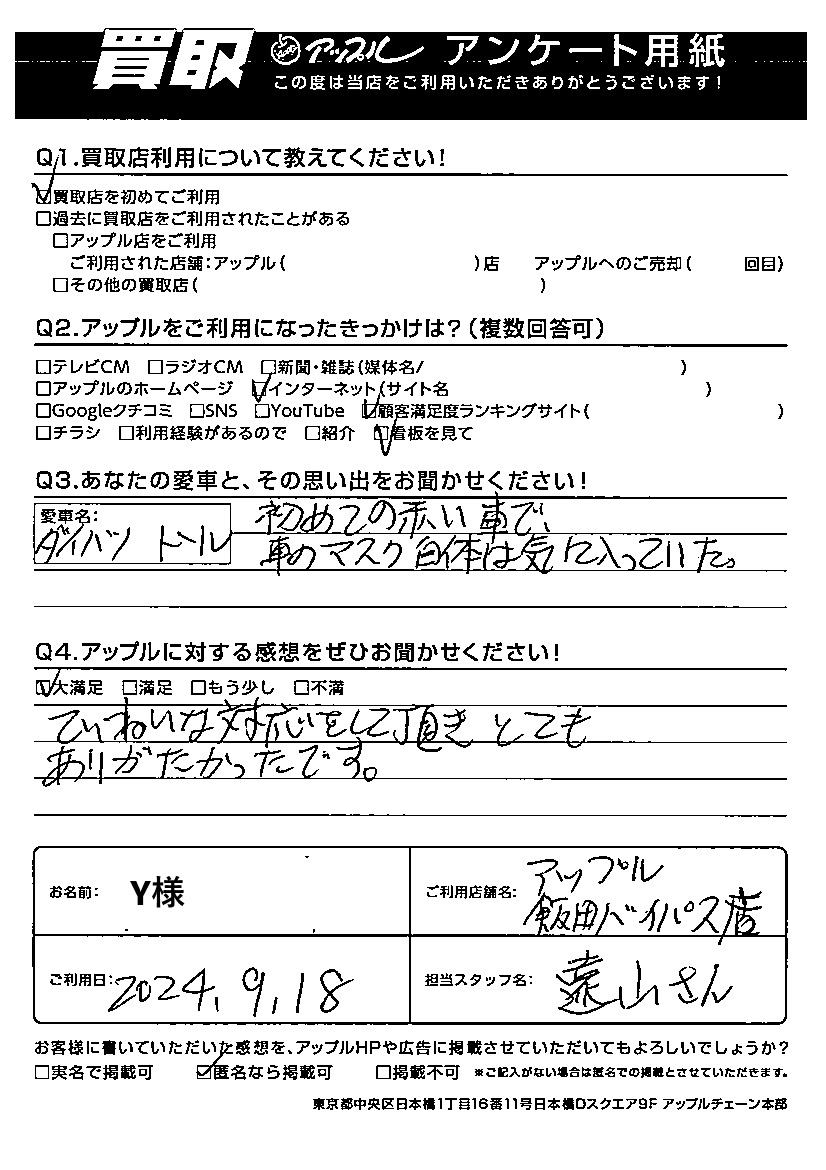 買取 アップル アンケート用紙
この度は当店をご利用いただきありがとうございます!
Q1.買取店利用について教えてください!
☑買取店を初めてご利用
□過去に買取店をご利用されたことがある
□アップル店をご利用
ご利用された店舗:アップル( )店 アップルへのご売却( 回目)
□その他の買取店( )
Q2.アップルをご利用になったきっかけは?(複数回答可)
□テレビCM □ラジオCM □新聞・雑誌(媒体名/ )
□アップルのホームページ ☑インターネット(サイト名 )
□Googleクチコミ □SNS □YouTube ☑顧客満足度ランキングサイト( )
□チラシ □利用経験があるので □紹介 ☑看板を見て
Q3.あなたの愛車と、その思い出をお聞かせください!
愛車名:
ダイハツ トール
初めての赤い車で、
車のマスク自体は気に入っていた。
Q4.アップルに対する感想をぜひお聞かせください!
☑大満足 □満足 □もう少し □不満
ていねいな対応をして頂きとても
ありがたかったです。
お名前: Y様
ご利用店舗名: アップル
飯田バイパス店
ご利用日: 2024.9.18
担当スタッフ名: 遠山さん
お客様に書いていただいた感想を、アップルHPや広告に掲載させていただいてもよろしいでしょうか?
□実名で掲載可 ☑匿名なら掲載可 □掲載不可 ※ご記入がない場合は匿名での掲載とさせていただきます。
東京都中央区日本橋1丁目16番11号日本橋Dスクエア9F アップルチェーン本部